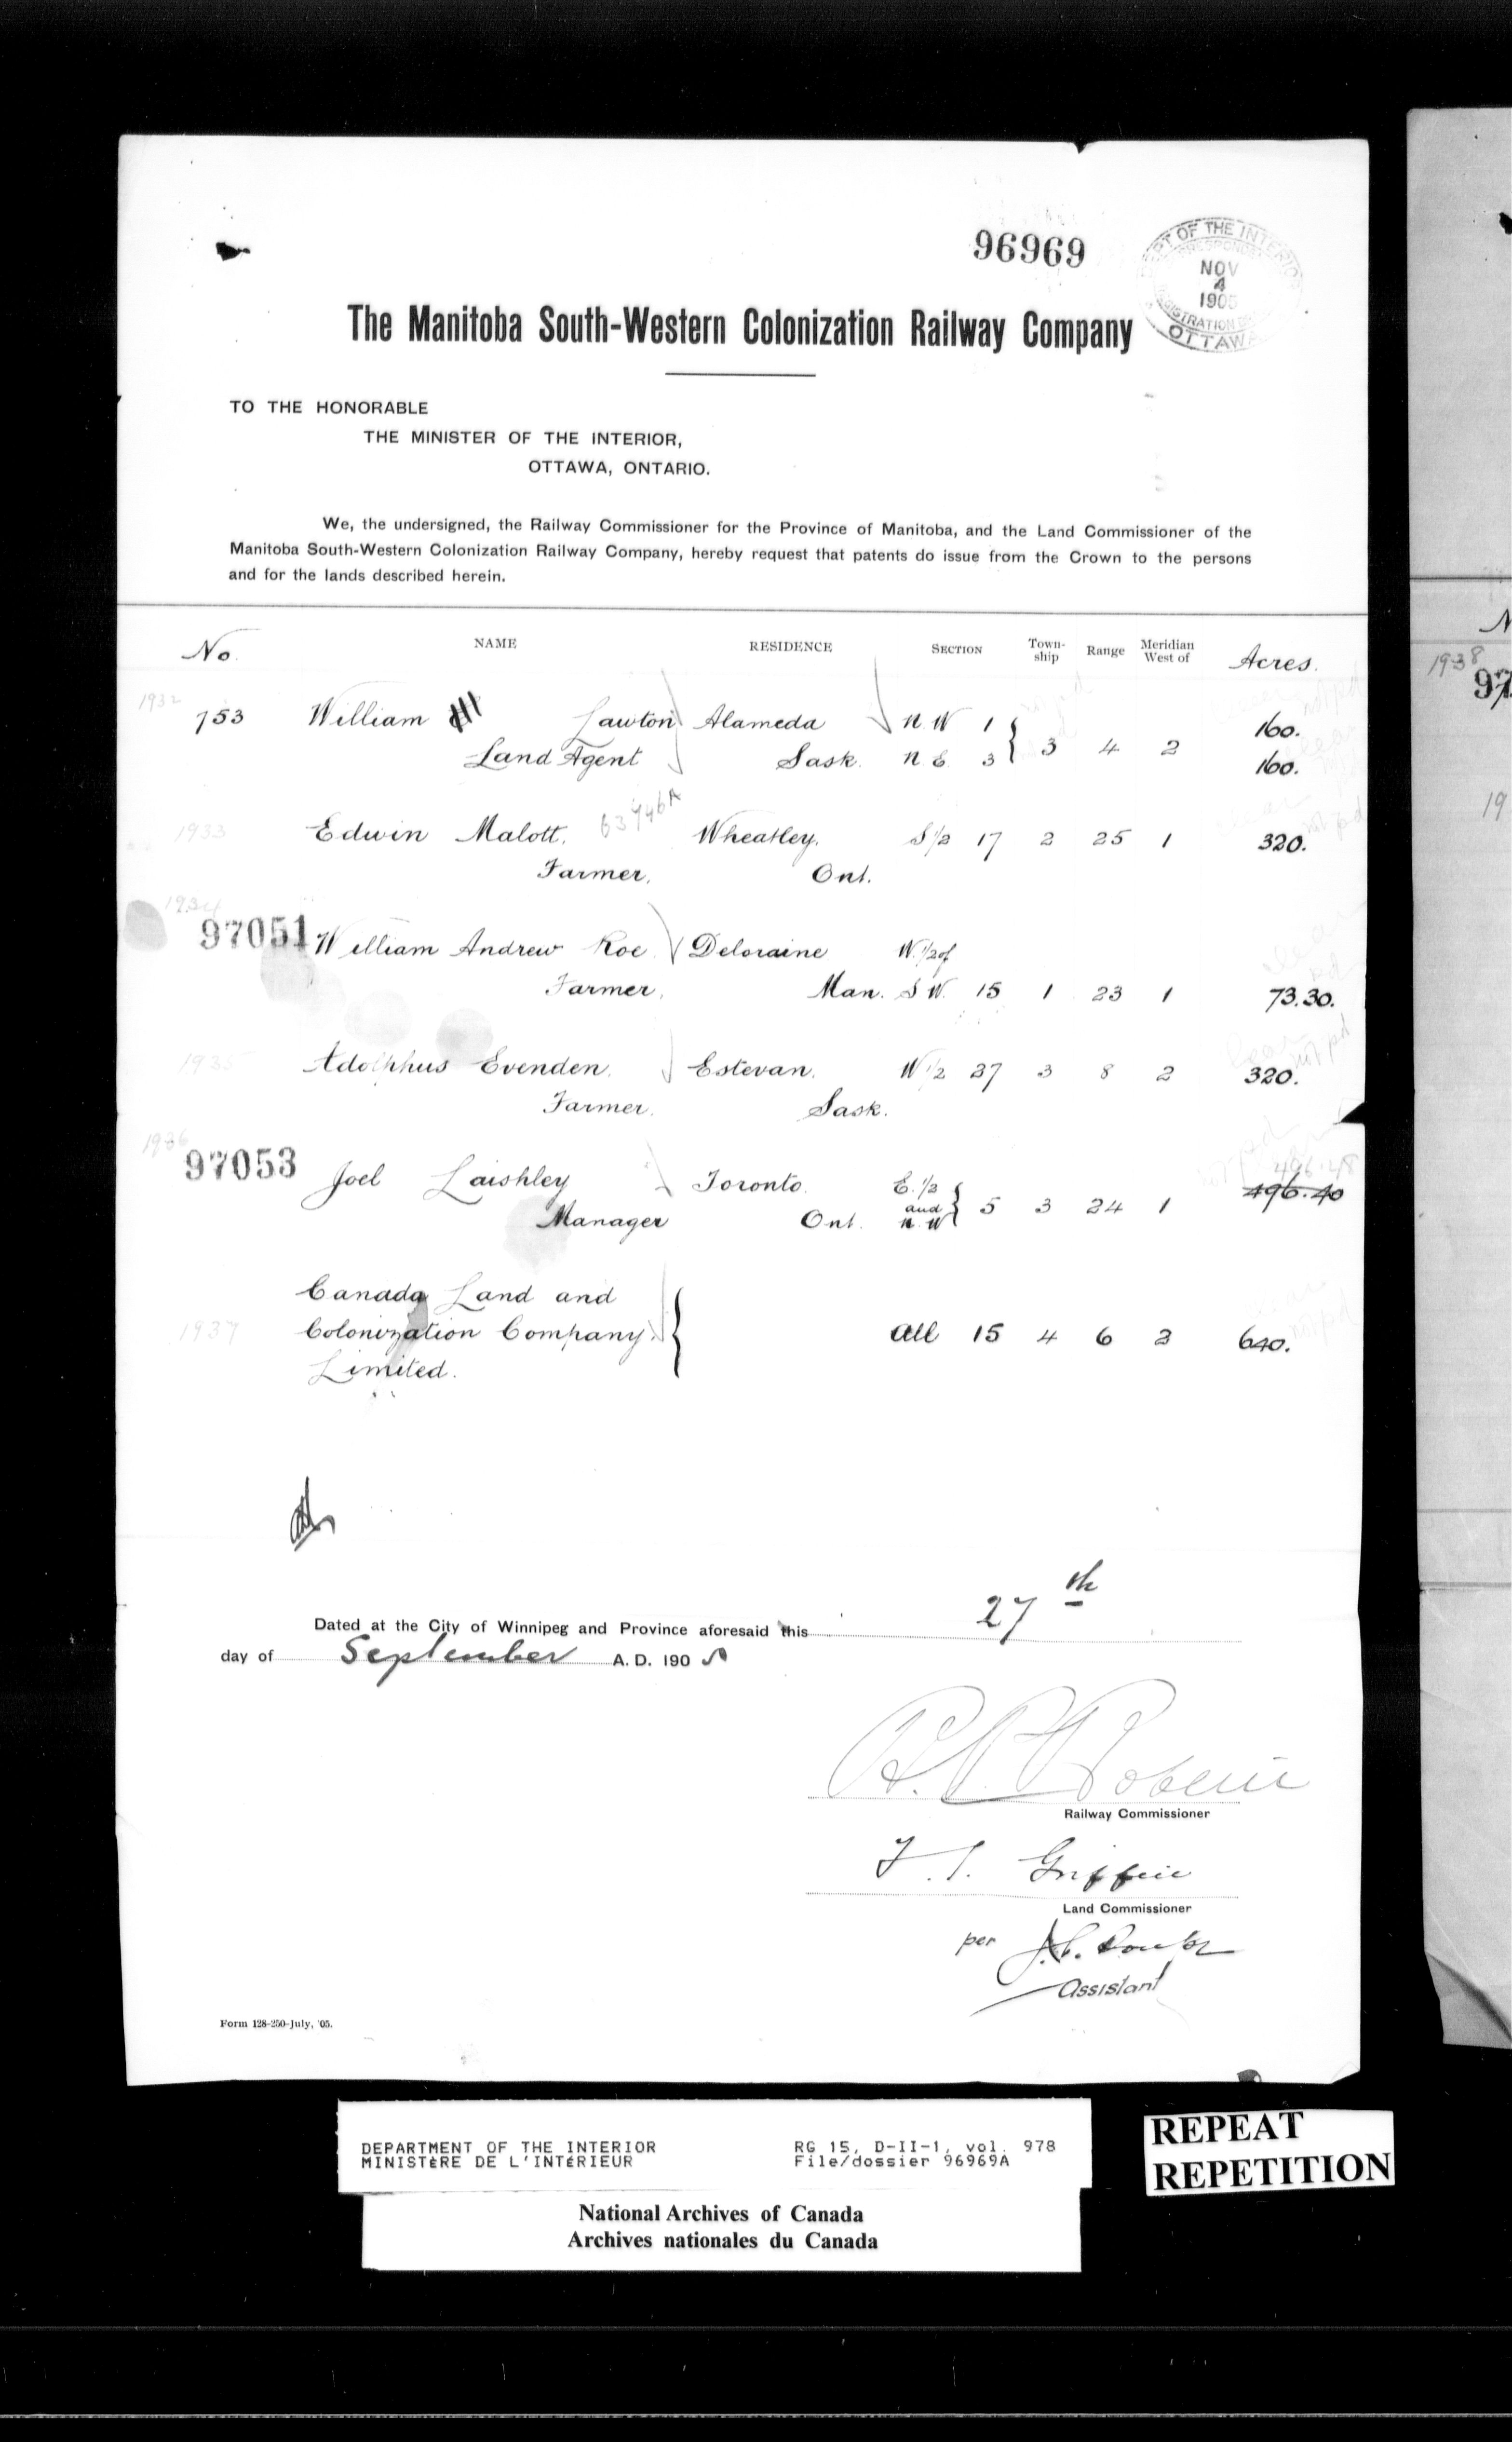 96969
DEPT OF THE INTERIOR
NOV
4
1905
REGISTRATION
OTTAWA
The Manitoba South-Western Colonization Railway Company
TO THE HONORABLE
THE MINISTER OF THE INTERIOR,
OTTAWA, ONTARIO.
We, the undersigned, the Railway Commissioner for the Province of Manitoba, and the Land Commissioner of the
Manitoba South-Western Colonization Railway Company, hereby request that patents do issue from the Crown to the persons
and for the lands described herein.
No. NAME RESIDENCE SECTION Town-ship Range Meridian West of Acres.
1932
753 William Lawton Alameda N.W 1 160.
Land Agent Sask. N.E. 3 3 4 2 160.
1933 Edwin Malott. 63746A Wheatley, S½ 17 2 25 1 320.
Farmer. Ont.
1934
97051 William Andrew Roe Deloraine W.½ of
Farmer, Man. S.W. 15 1 23 1 73.30.
1935 Adolphus Evenden. Estevan. W½ 27 3 8 2 320.
Farmer. Sask.
1936
97053 Joel Laishley Toronto. E.½ 496.48
and 5 3 24 1 496.40
Manager Ont. N.W
Canada Land and
1937 Colonization Company All 15 4 6 2 640.
Limited.
Dated at the City of Winnipeg and Province aforesaid this 27th
day of September A. D. 1905
Railway Commissioner
F. T. Griffin
Land Commissioner
per
Assistant
Form 128-250-July, '05.
1938
97
19
DEPARTMENT OF THE INTERIOR RG 15, D-II-1, vol. 978
MINISTÈRE DE L'INTÉRIEUR File/dossier 96969A
National Archives of Canada
Archives nationales du Canada
REPEAT
REPETITION